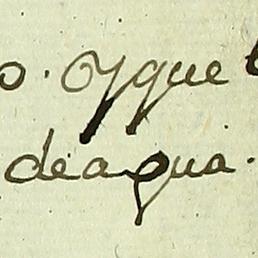 o. oyque
deagua.